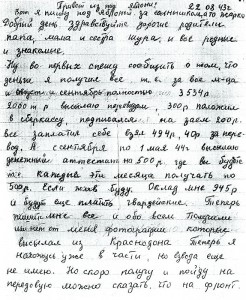 Привет из под яблони! 22 08 43 г
Вот я пишу под яблоней. За
Добрый день, здравствуйте дорогие родители
папа, мама и сестра Шура, и все родные
и знакомые.
Ну во первых спешу сообщить о том, что
деньги я получил все т. е. за все м-ца
и сентября полностью 3539 р
2000 т р выслал переводом, 300 р положил
в сберкассу, подписался на заем 200 р.
вес заплатил себе взял 494 р, 40 р за пере-
вод. А с сентября по 1 мая 44 г. выслал
денежный аттестат на 500 р. где вы будете
т. е. каждый эти месяца получать по
500 р. Если жив буду. Оклад мне 945 р
и будут еще платить гвардейские. Теперь
пишите мне все и обо всем Получили
или нет от меня фотографии которые
высылал из Краснодона Теперь я
нахожусь уже в части, но взвода еще
не имею. Но скоро получу и пойду на
передовую можно сказать, что на фронт.